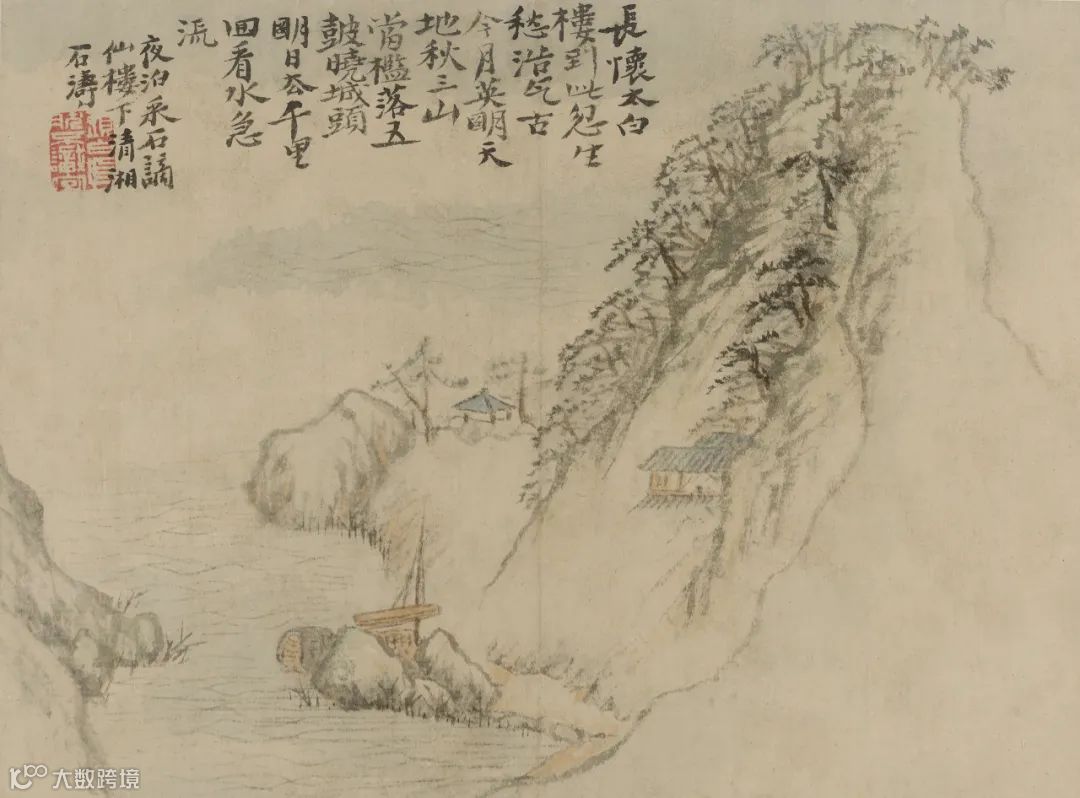 長懷太白
樓到此忽生
愁浩气古
今月英朙天
地秋三山
當檻落五
皷曉城頭
朙日厺千里
囬看水急
流
夜泊采石謫
仙樓下清湘
石濤
大数跨境